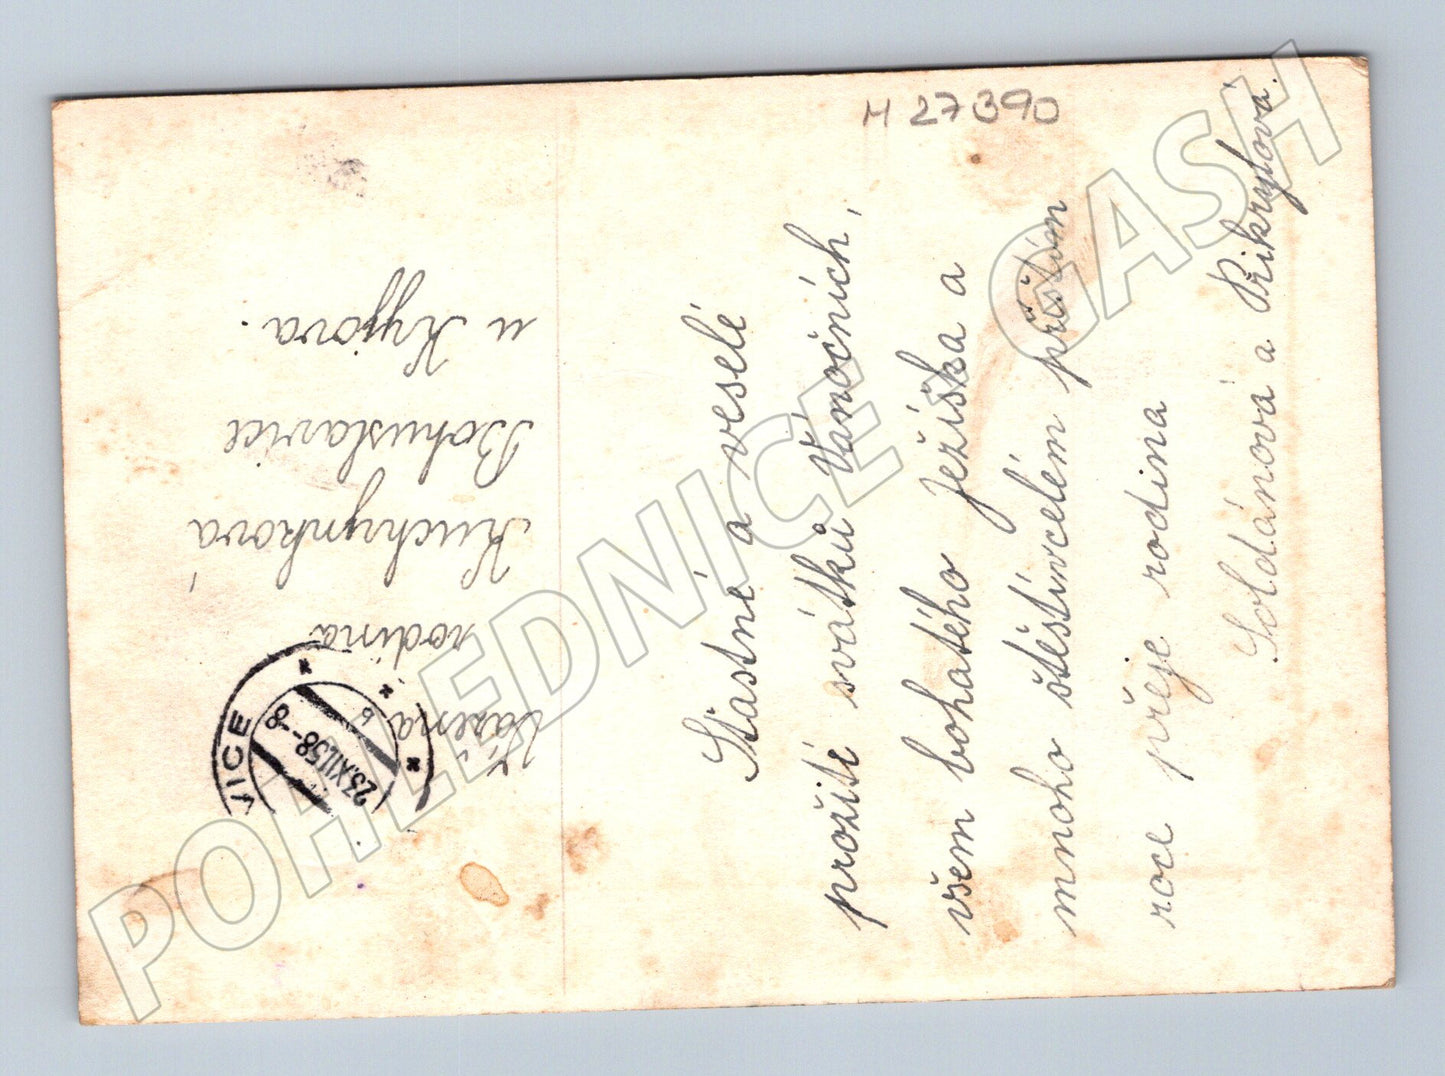 H 27390
Šťastné a veselé
prožití svátků Vánočních,
všem bohatého Ježíška a
mnoho štěstívcelém příštím
roce přeje rodina
Soldánová a Přikrylová.
Vážená
rodina
Kuchynková
Bohuslavice
u Kyjova.
VICE
23.XII.58--8
b
POHLEDNICE - GASH